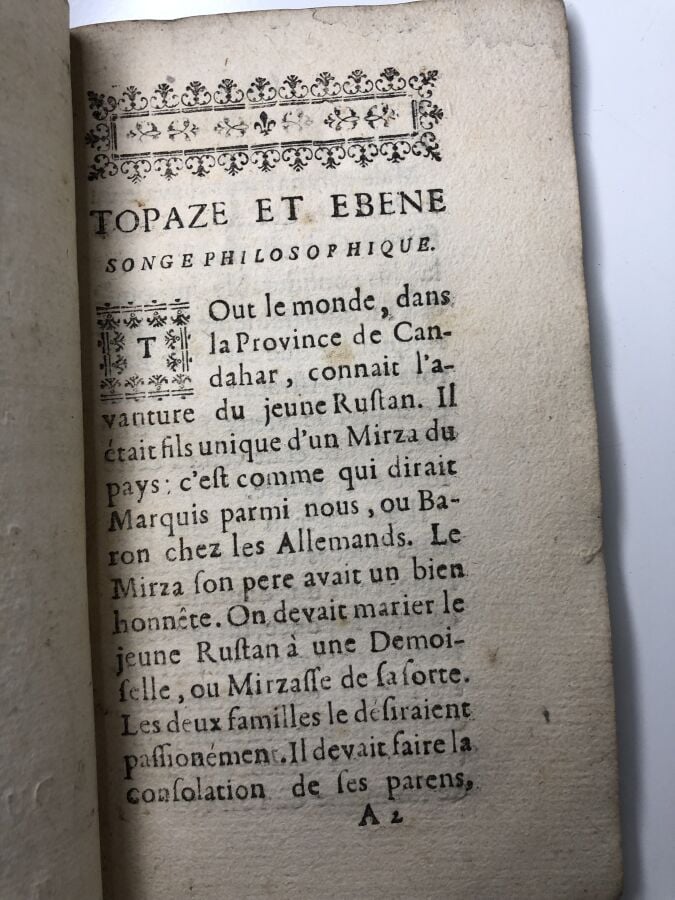 TOPAZE ET EBENE
SONGE PHILOSOPHIQUE.
TOut le monde, dans
la Province de Can-
dahar, connait l'a-
vanture du jeune Ruſtan. Il
était fils unique d'un Mirza du
pays: c'eſt comme qui dirait
Marquis parmi nous, ou Ba-
ron chez les Allemands. Le
Mirza ſon pere avait un bien
honnête. On devait marier le
jeune Ruſtan à une Demoi-
ſelle, ou Mirzaſſe de ſa ſorte.
Les deux familles le déſiraient
paſſionément. Il devait faire la
conſolation de ſes parens,
A 2